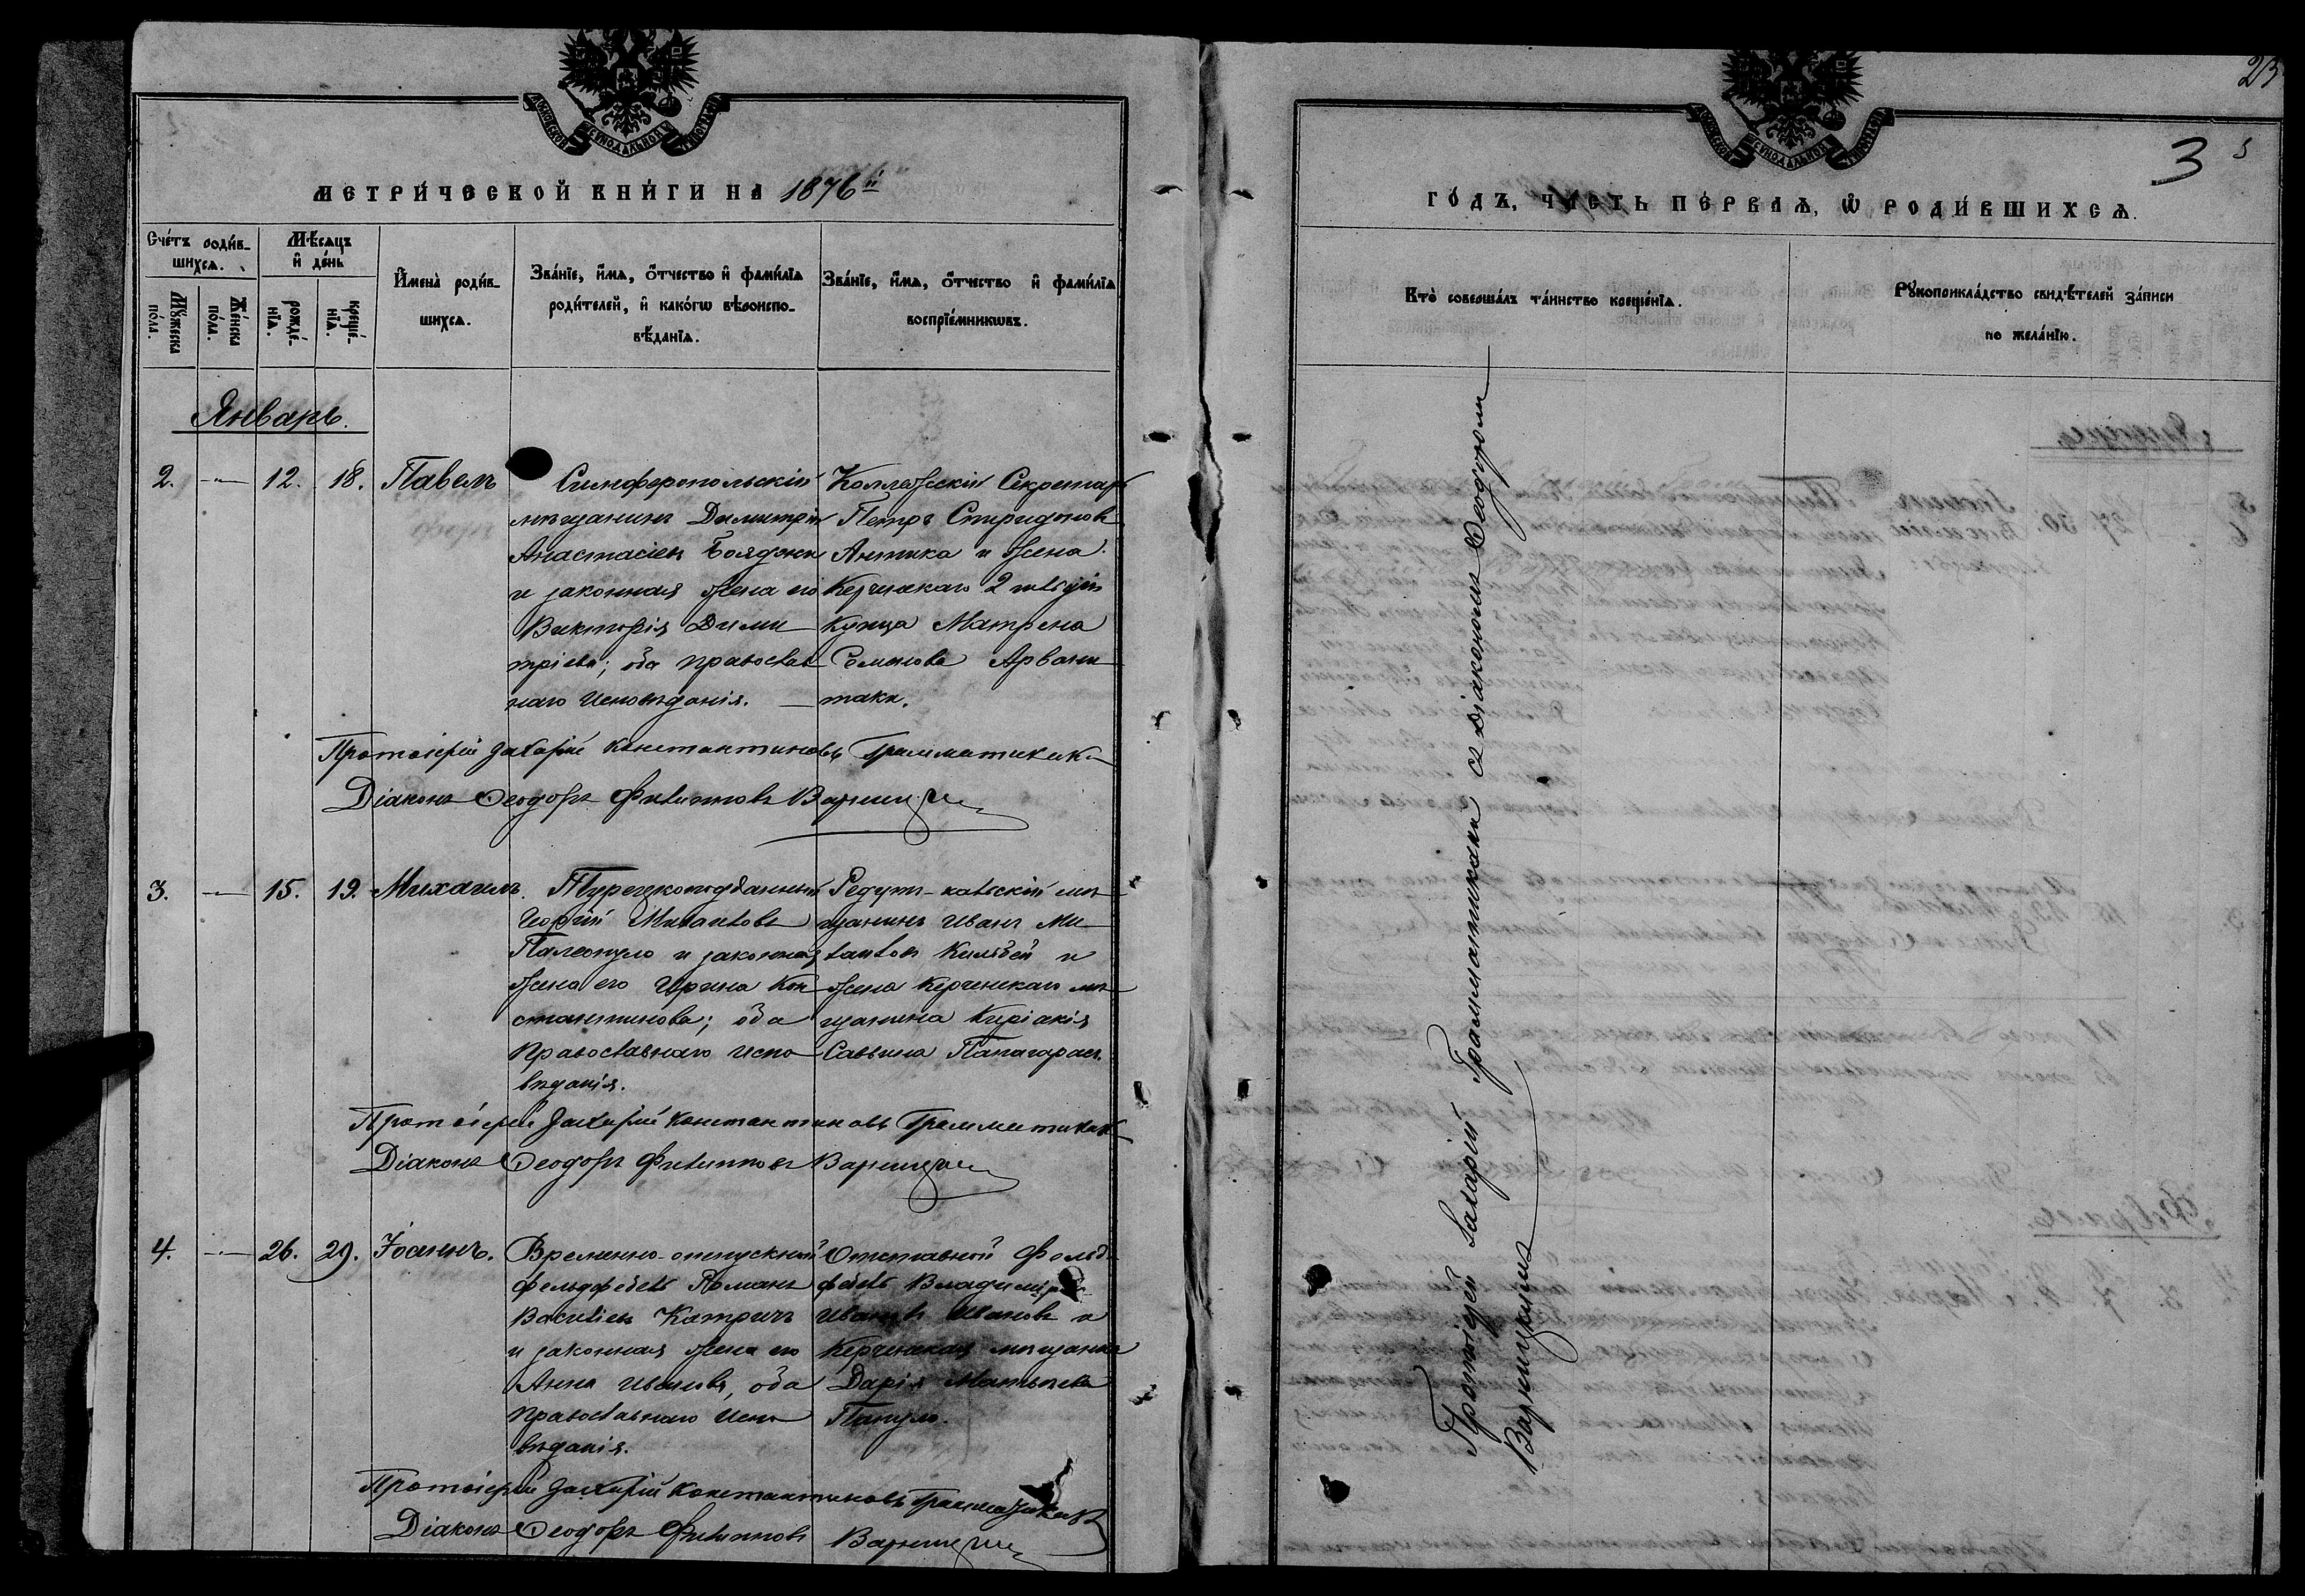 МОСКОВСКОЙ СѴНОДАЛЬНОЙ ТИПОГРАФІИ
МЕТРИ́ЧЕСКОЙ КНИ́ГИ НА 1876й
Сче́тъ роди́в-
шихсѧ.
Мѣ́сѧцъ
и҆ де́нь
Мꙋ́жеска
по́ла.
Же́нска
по́ла.
рожде́-
нїѧ.
креще́-
нїѧ.
И҆мена̀ роди́в-
шихсѧ.
Зва́нїе, и҆́мѧ, ѻ҆́тчество и҆ фами́лїѧ
роди́телей, и҆ како́гѡ вѣроиспо-
вѣ́данїѧ.
Зва́нїе, и҆́мѧ, ѻ҆́тчество и҆ фами́лїѧ
воспрїе́мникѡвъ.
Январь.
2. — 12. 18. Павелъ
Симферопольскій
мѣщанинъ Димитрій
Анастасіевъ
и законная жена его
Викторія Дими-
тріева; оба православ-
наго исповѣданія. —
Коллежскій Секретарь
Петръ Спиридоновъ
Антика и жена
Керченскаго 2 гильдіи
купца Матрена
Семенова Арвани-
таки.
Протоіерей Захарій Константиновъ Грамматикаки
Діаконъ Ѳеодоръ Филипповъ Варницкій
3. — 15. 19. Михаилъ.
Турецкоподданный
Георгій Михаиловъ
Палеопуло и законная
жена его Ирина Кон-
стантинова; оба
Православнаго испо-
вѣданія.
Редутъ-кальскій мѣ-
щанинъ Иванъ Ми-
хаиловъ и
жена Керченскаго мѣ-
щанина Киріакія
Саввина
Протоіерей Захарій Константиновъ Грамматикаки
Діаконъ Ѳеодоръ Филипповъ Варницкій
4. — 26. 29. Іоаннъ.
Временно-отпускной
фельдфебель Романъ
Васильевъ Катричъ
и законная жена его
Анна Иванова, оба
Православнаго испо-
вѣданія.
Отставной фельд-
фебель Владиміръ
Ивановъ Ивановъ и
Керченская мѣщанка
Дарія Матвѣева
Протоіерей Захарій Константиновъ Грамматикаки
Діаконъ Ѳеодоръ Филипповъ Варницкій
23
3
МОСКОВСКОЙ СѴНОДАЛЬНОЙ ТИПОГРАФІИ
ГО́ДЪ, ЧА́СТЬ ПЕ́РВАѦ, Ѡ҆ РОДИ́ВШИХСѦ.
Кто̀ соверша́лъ та́инство креще́нїѧ.
Рꙋкоприкла́дство свидѣ́телей за́писи
по жела́нїю.
Протоіерей Захарій Грамматикаки съ Діакономъ Ѳеодоромъ
Варницкимъ